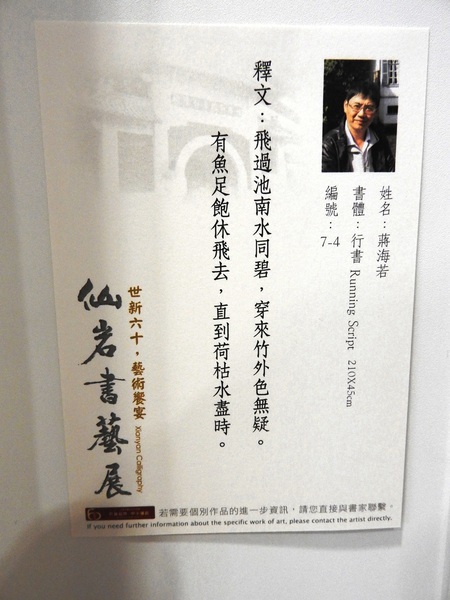 姓名：蔣海若
書體：行書 Running Script 210X45cm
編號：7-4
釋文：飛過池南水同碧，穿來竹外色無疑。
有魚足飽休飛去，直到荷枯水盡時。
世新六十，藝術饗宴 Xianyan Calligraphy
仙岩書藝展
若需要個別作品的進一步資訊，請您直接與書家聯繫。
If you need further information about the specific work of art, please contact the artist directly.